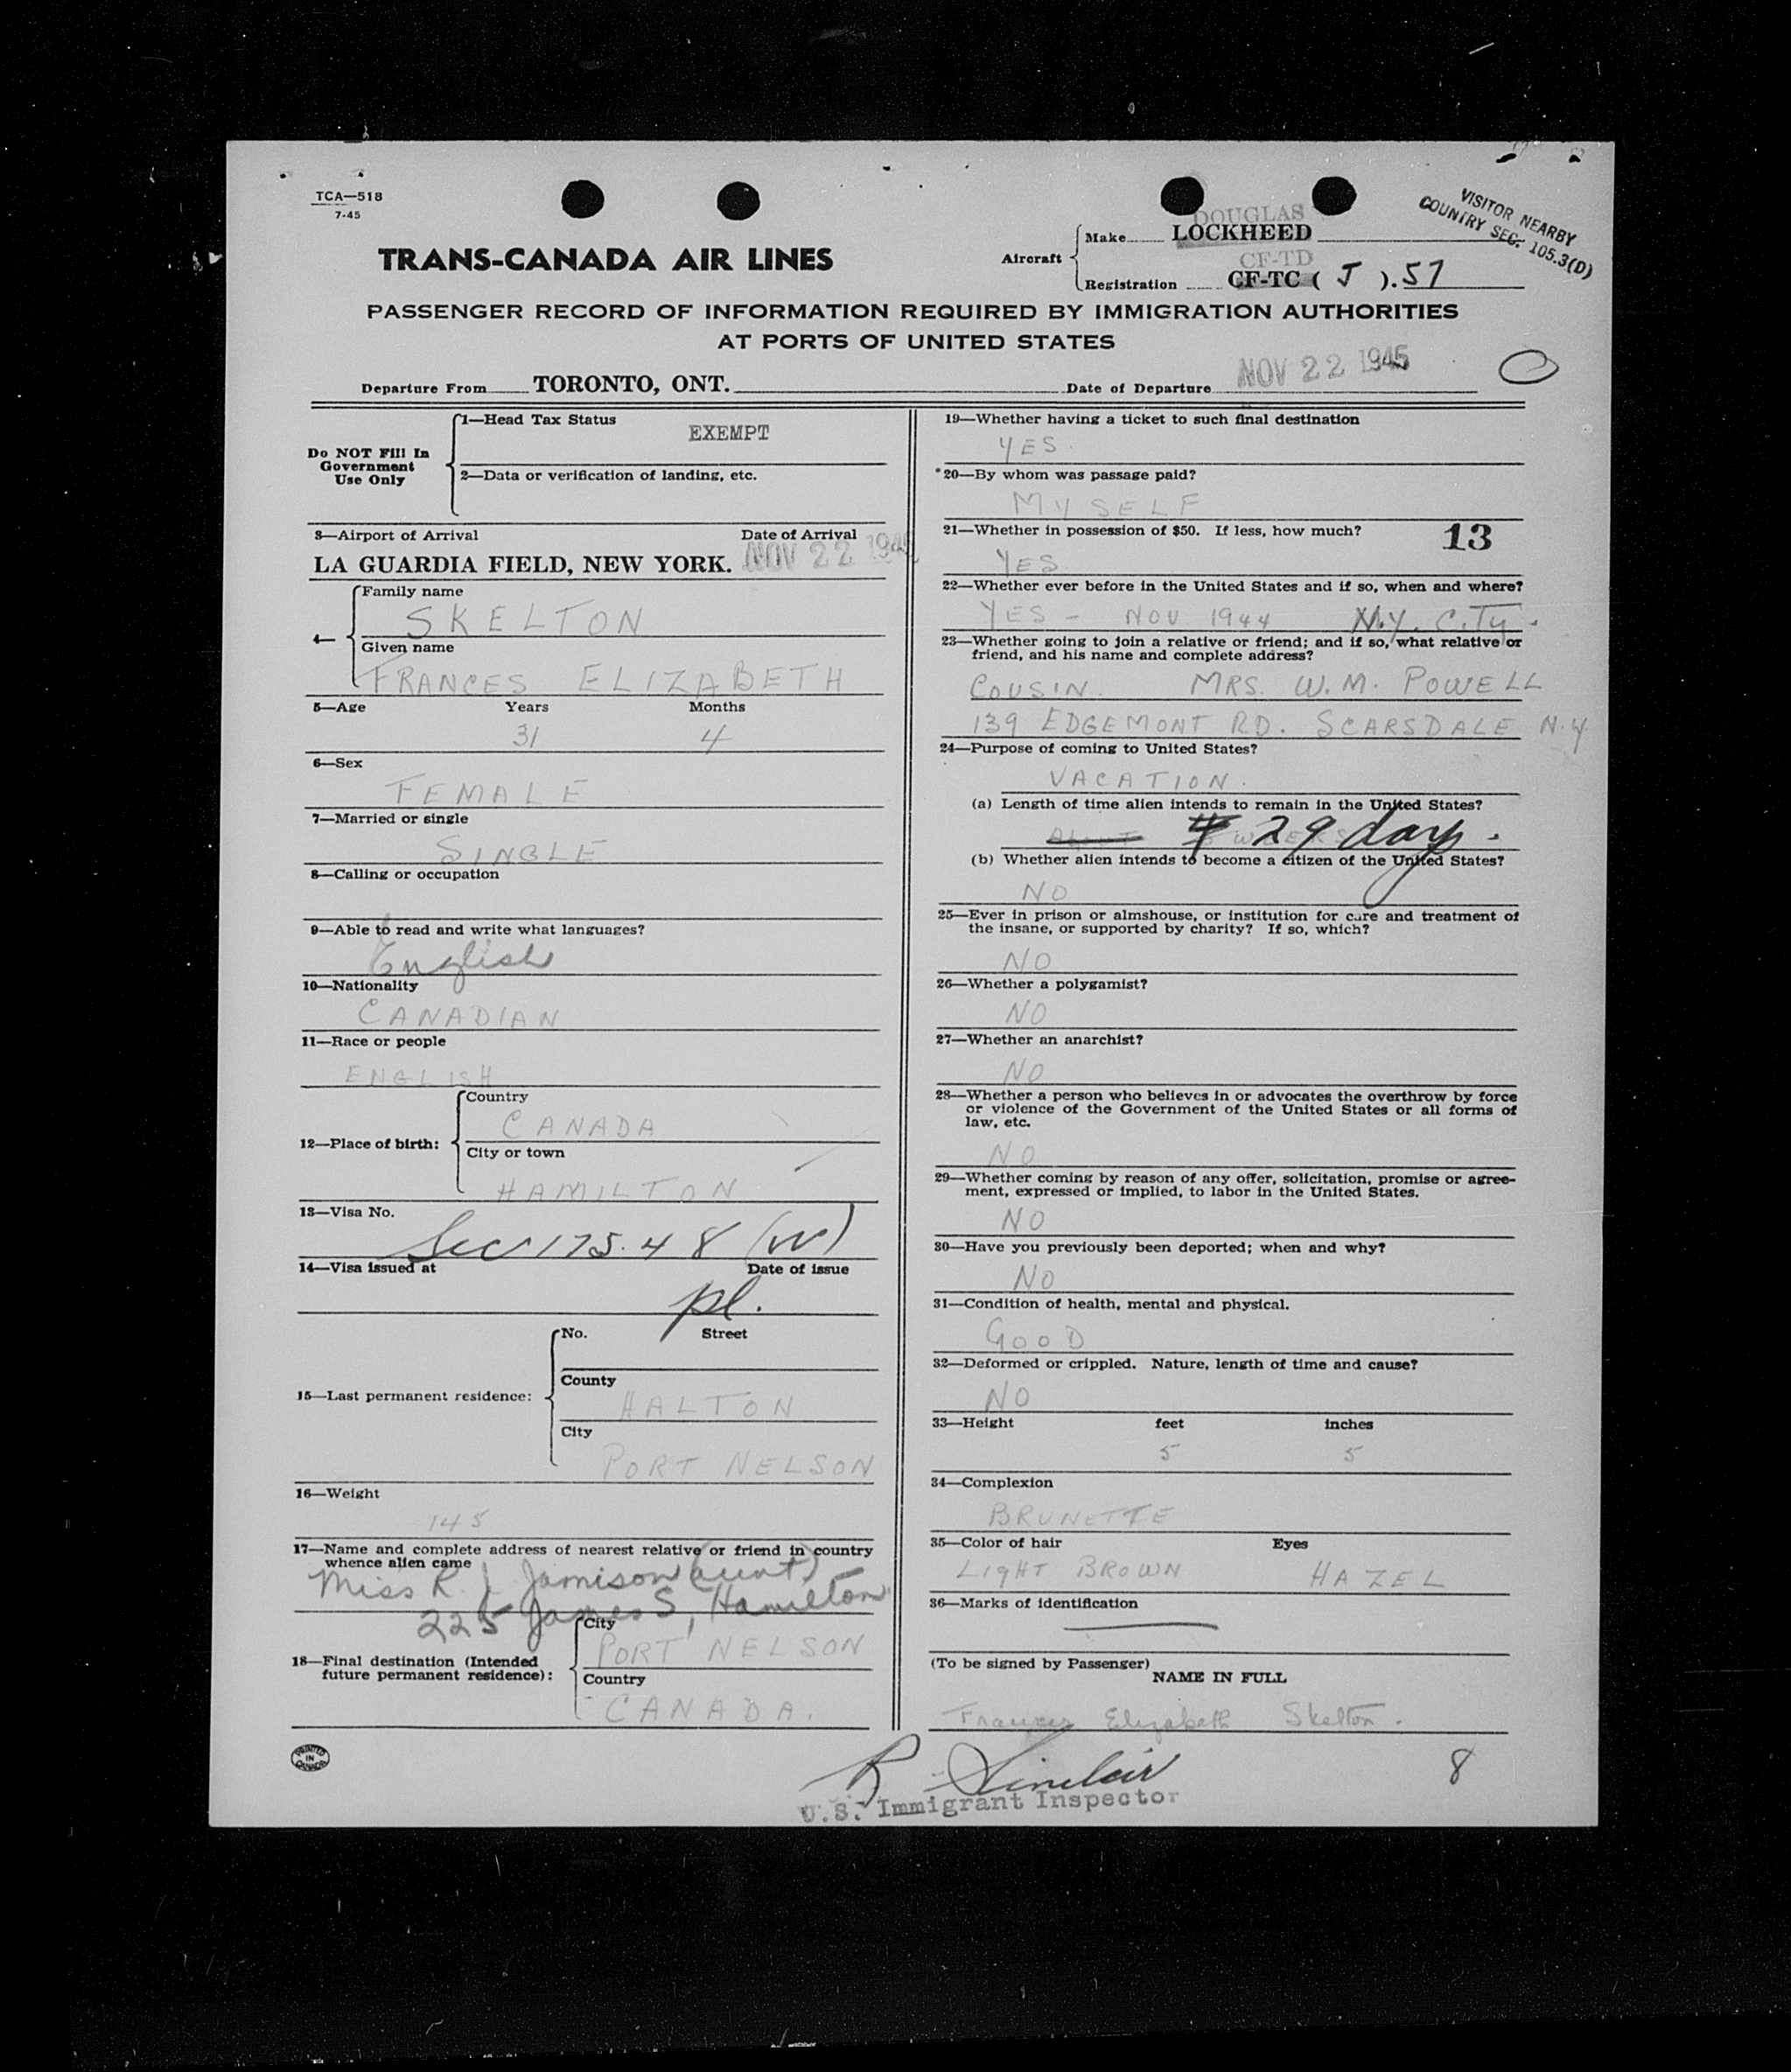 TCA—518
7-45
VISITOR NEARBY
COUNTRY SEC. 105.3(D)
TRANS-CANADA AIR LINES
DOUGLAS
Aircraft Make LOCKHEED
CF-TD
Registration CF-TC ( J ).57
PASSENGER RECORD OF INFORMATION REQUIRED BY IMMIGRATION AUTHORITIES
AT PORTS OF UNITED STATES
Departure From TORONTO, ONT. Date of Departure NOV 22 1945
Do NOT Fill In
Government
Use Only
1—Head Tax Status
EXEMPT
2—Data or verification of landing, etc.
3—Airport of Arrival Date of Arrival
LA GUARDIA FIELD, NEW YORK. NOV 22 194
4—
Family name
SKELTON
Given name
FRANCES ELIZABETH
5—Age Years Months
31 4
6—Sex
FEMALE
7—Married or single
SINGLE
8—Calling or occupation
9—Able to read and write what languages?
English
10—Nationality
CANADIAN
11—Race or people
ENGLISH
12—Place of birth:
Country
CANADA
City or town
HAMILTON
13—Visa No.
Sec 175.48 (W)
14—Visa issued at Date of issue
pl.
15—Last permanent residence:
No. Street
County
HALTON
City
PORT NELSON
16—Weight
145
17—Name and complete address of nearest relative or friend in country
whence alien came
Miss R. J. Jamison (aunt)
225 James S, Hamilton
18—Final destination (Intended
future permanent residence):
City
PORT NELSON
Country
CANADA.
PRINTED
IN
CANADA
19—Whether having a ticket to such final destination
YES.
*20—By whom was passage paid?
MYSELF
21—Whether in possession of $50. If less, how much? 13
YES
22—Whether ever before in the United States and if so, when and where?
YES - NOV 1944 N.Y. CiTy.
23—Whether going to join a relative or friend; and if so, what relative or
friend, and his name and complete address?
COUSIN. MRS. W.M. POWELL
139 EDGEMONT RD. SCARSDALE N.Y
24—Purpose of coming to United States?
VACATION.
(a) Length of time alien intends to remain in the United States?
About 4 WEEKS 29 days.
(b) Whether alien intends to become a citizen of the United States?
NO
25—Ever in prison or almshouse, or institution for care and treatment of
the insane, or supported by charity? If so, which?
NO
26—Whether a polygamist?
NO
27—Whether an anarchist?
NO
28—Whether a person who believes in or advocates the overthrow by force
or violence of the Government of the United States or all forms of
law, etc.
NO
29—Whether coming by reason of any offer, solicitation, promise or agree-
ment, expressed or implied, to labor in the United States.
NO
30—Have you previously been deported; when and why?
NO
31—Condition of health, mental and physical.
GOOD
32—Deformed or crippled. Nature, length of time and cause?
NO
33—Height feet inches
5 5
34—Complexion
BRUNETTE
35—Color of hair Eyes
LIGHT BROWN HAZEL
36—Marks of identification
(To be signed by Passenger)
NAME IN FULL
Frances Elizabeth Skelton.
R Sinclair 8
U.S. Immigrant Inspector